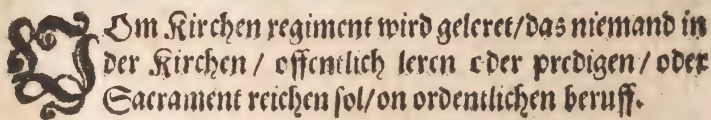 VOm Kirchen regiment wird geleret/das niemand in
der Kirchen / offentlich leren oder predigen / oder
Sacrament reichen sol/on ordentlichen beruff.